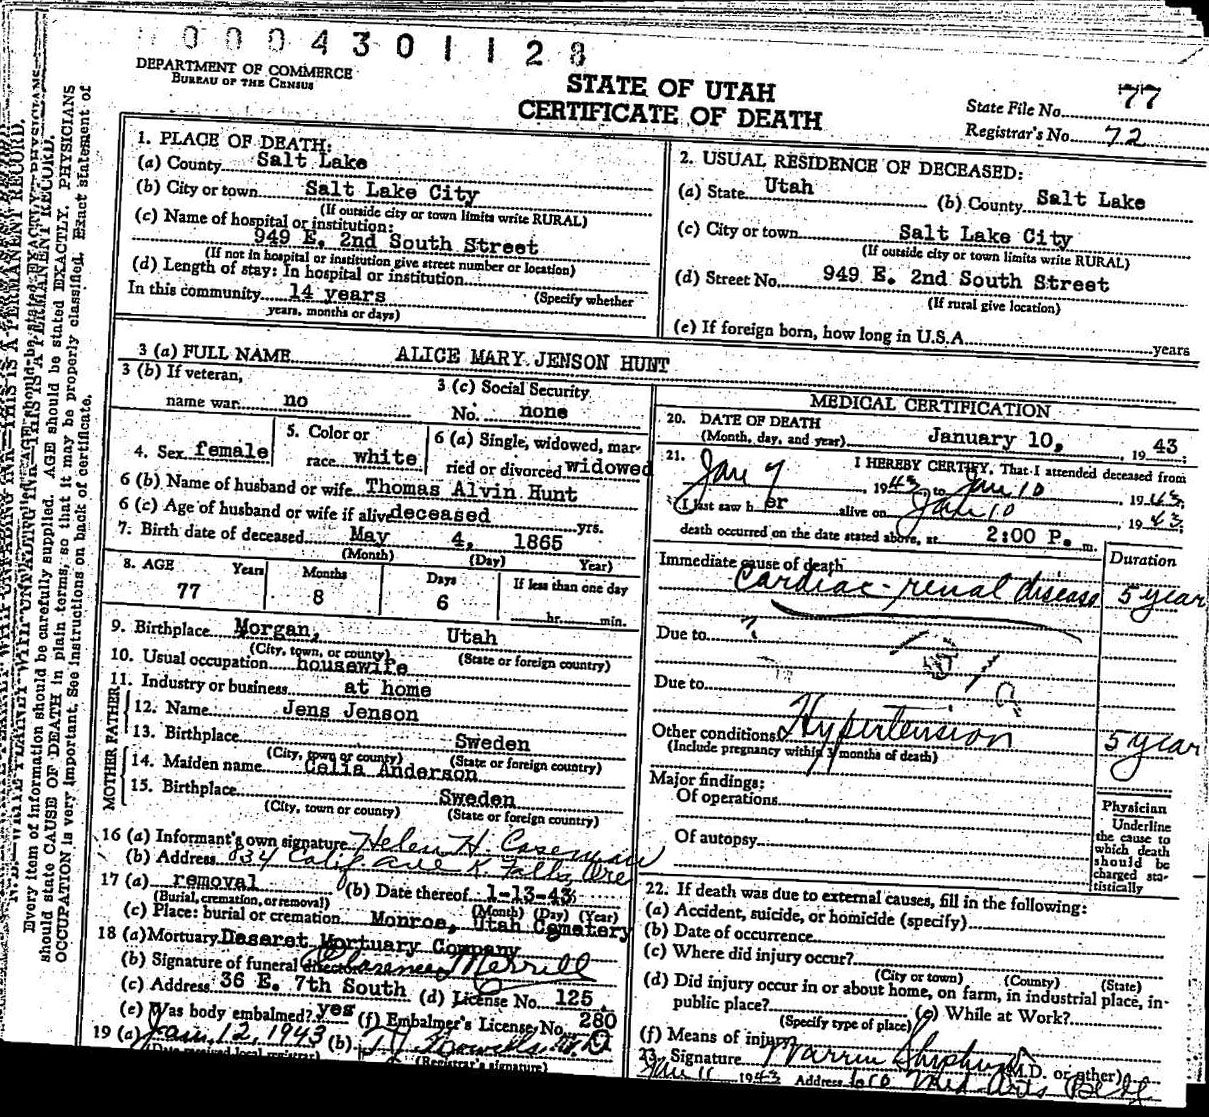 0004301128
DEPARTMENT OF COMMERCE
BUREAU OF THE CENSUS
STATE OF UTAH
CERTIFICATE OF DEATH
State File No. 77
Registrar's No. 72
1. PLACE OF DEATH:
(a) County Salt Lake
(b) City or town Salt Lake City
(If outside city or town limits write RURAL)
(c) Name of hospital or institution:
949 E. 2nd South Street
(If not in hospital or institution give street number or location)
(d) Length of stay: In hospital or institution
In this community 14 years (Specify whether
years, months or days)
2. USUAL RESIDENCE OF DECEASED:
(a) State Utah (b) County Salt Lake
(c) City or town Salt Lake City
(If outside city or town limits write RURAL)
(d) Street No. 949 E. 2nd South Street
(If rural give location)
(e) If foreign born, how long in U.S.A. years
3 (a) FULL NAME ALICE MARY JENSON HUNT
3 (b) If veteran,
name war no
3 (c) Social Security
No. none
4. Sex female
5. Color or
race white
6 (a) Single, widowed, mar-
ried or divorced widowed
6 (b) Name of husband or wife Thomas Alvin Hunt
6 (c) Age of husband or wife if alive deceased yrs.
7. Birth date of deceased May 4, 1865
(Month) (Day) Year)
8. AGE Years Months Days If less than one day
77 8 6 hr. min.
9. Birthplace Morgan, Utah
(City, town, or county) (State or foreign country)
10. Usual occupation housewife
11. Industry or business at home
FATHER
12. Name Jens Jenson
13. Birthplace Sweden
(City, town or county) (State or foreign country)
MOTHER
14. Maiden name Celia Anderson
15. Birthplace Sweden
(City, town or county) (State or foreign country)
16 (a) Informant's own signature Helen H. Caseman
(b) Address 834 Calif. ave K. Falls Ore
17 (a) removal (b) Date thereof 1-13-43
(Burial, cremation, or removal) (Month) (Day) (Year)
(c) Place: burial or cremation Monroe, Utah Cemetery
18 (a) Mortuary Deseret Mortuary Company
(b) Signature of funeral director Clarence Merrill
(c) Address 36 E. 7th South (d) License No. 125
(e) Was body embalmed? yes (f) Embalmer's License No. 280
19 (a) Jan. 12, 1943 (b)
(Date received local registrar) (Registrar's signature)
MEDICAL CERTIFICATION
20. DATE OF DEATH
(Month, day, and year) January 10, 1943
21. I HEREBY CERTIFY, That I attended deceased from
Jan 7 1943 to Jan 10 1943
I last saw her alive on Jan 10, 1943
death occurred on the date stated above, at 2:00 P. m.
Immediate cause of death Duration
Cardiac-renal disease 5 year
Due to ?
Due to
Other conditions Hypertension 5 year
(Include pregnancy within 3 months of death)
Major findings:
Of operations
Of autopsy
Physician
Underline
the cause to
which death
should be
charged sta-
tistically
22. If death was due to external causes, fill in the following:
(a) Accident, suicide, or homicide (specify)
(b) Date of occurrence
(c) Where did injury occur?
(City or town) (County) (State)
(d) Did injury occur in or about home, on farm, in industrial place, in-
public place? (e) While at Work?
(Specify type of place)
(f) Means of injury
23. Signature Warren (M.D. or other)
Jan 11 1943 Address 610 Med Arts Bldg
Every item of information should be carefully supplied. AGE should be stated EXACTLY. PHYSICIANS
should state CAUSE OF DEATH in plain terms, so that it may be properly classified. Exact statement of
OCCUPATION is very important. See instructions on back of certificate.